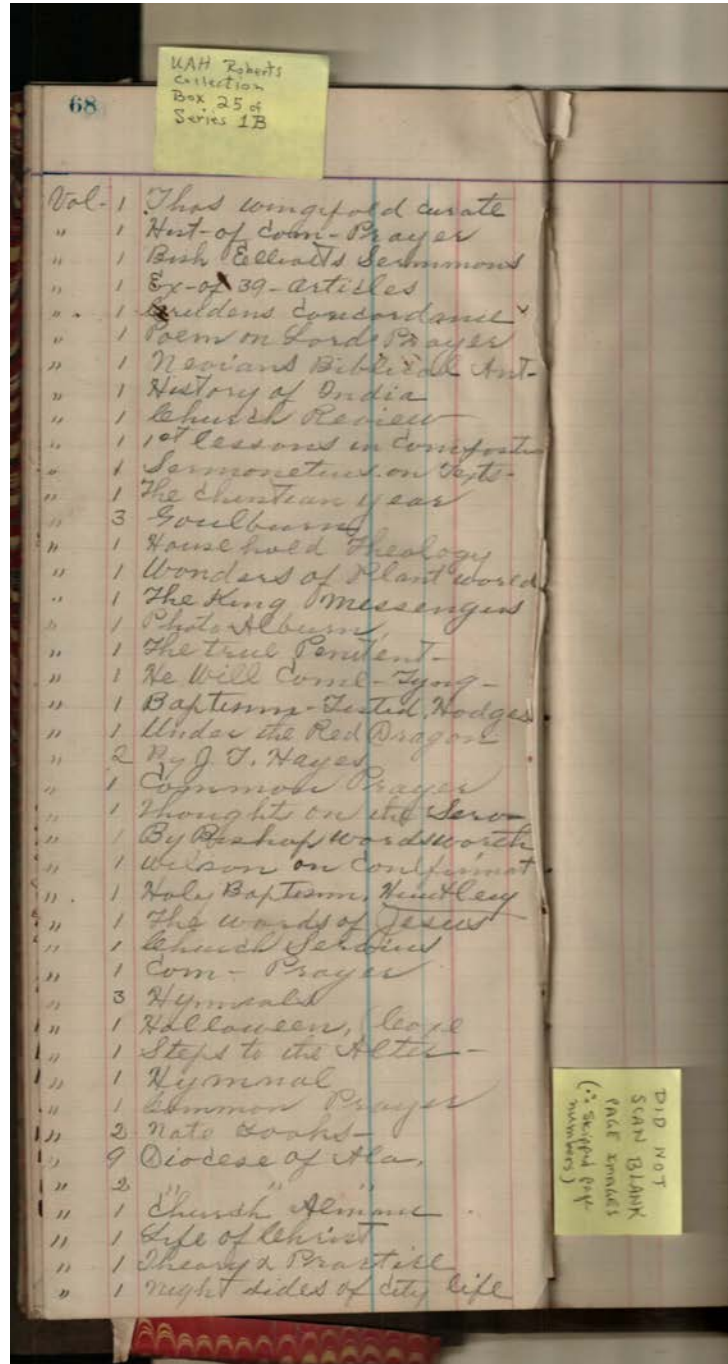 UAH Roberts
Collection
Box 25 of
Series 1B
68
Vol- 1 Thos wingfold curate
" 1 Hist- of Com- Prayer
" 1 Bish Elliotts Sermmons
" 1 Ex- of 39- articles
" 1 Crudens Concordance
" 1 Poem on Lords Prayer
" 1 Nevians Biblical Ant-
" 1 History of India
" 1 Church Review
" 1 1st lessons in Compositi
" 1 on Texts-
" 1 The Christian year
" 3 Goulburn
" 1 House hold Theology
" 1 Wonders of Plant world
" 1 The King Messengers
" 1 Photo Album
" 1 The true Penitent-
" 1 He Will Come- Tyng-
" 1 Baptism- Tested, Hodges
" 1 Under the Red Dragon
" 2 By J. T. Hayes
" 1 Common Prayer
" 1 Thought on the Serv-
" 1 By Bishop wordsworth
" 1 Wilson on Confirmat
" 1 Holy Baptism, Huntley
" 1 The words of Jesus
" 1 Church Services
" 1 Com- Prayer
" 3 Hymnals
" 1 Halloween, Coxe
" 1 Steps to the Alter-
" 1 Hymnal
" 1 Common Prayer
" 2 Note Books-
" 9 Diocese of Ala.
" 2 " " "
" 1 Church Almanc
" 1 Life of Christ
" 1 Theory & Practise
" 1 night sides of city life
DID NOT
SCAN BLANK
PAGE IMAGES
(∴ skipped page
numbers)